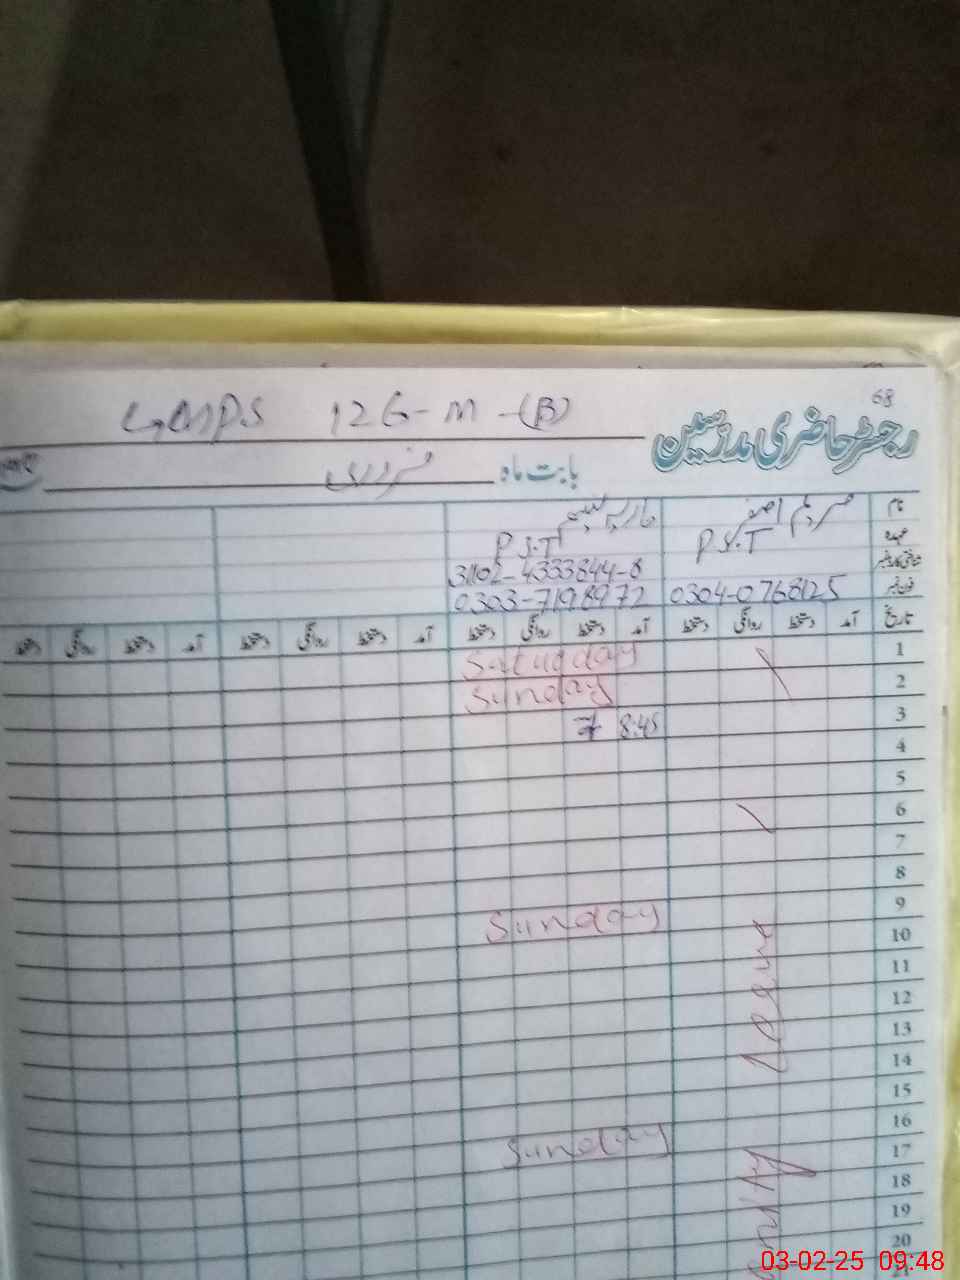 68
GMPS 126-M-(B)
رجسٹر حاضری مدرسین
بابت ماہ فروری
نام مریم
عہدہ P.S.T P.S.T
شناختی کارڈ نمبر 31102-4333844-8
فون نمبر 0304-0768125 0303-7198972
تاریخ آمد دستخط روانگی دستخط آمد دستخط روانگی دستخط آمد دستخط روانگی دستخط آمد دستخط روانگی دستخط
1 Saturday
2 Sunday
3 8:45
4
5
6
7
8
9 Sunday
10
11
12
13
14
15
16 Sunday
17
18
19
20
21
03-02-25 09:48